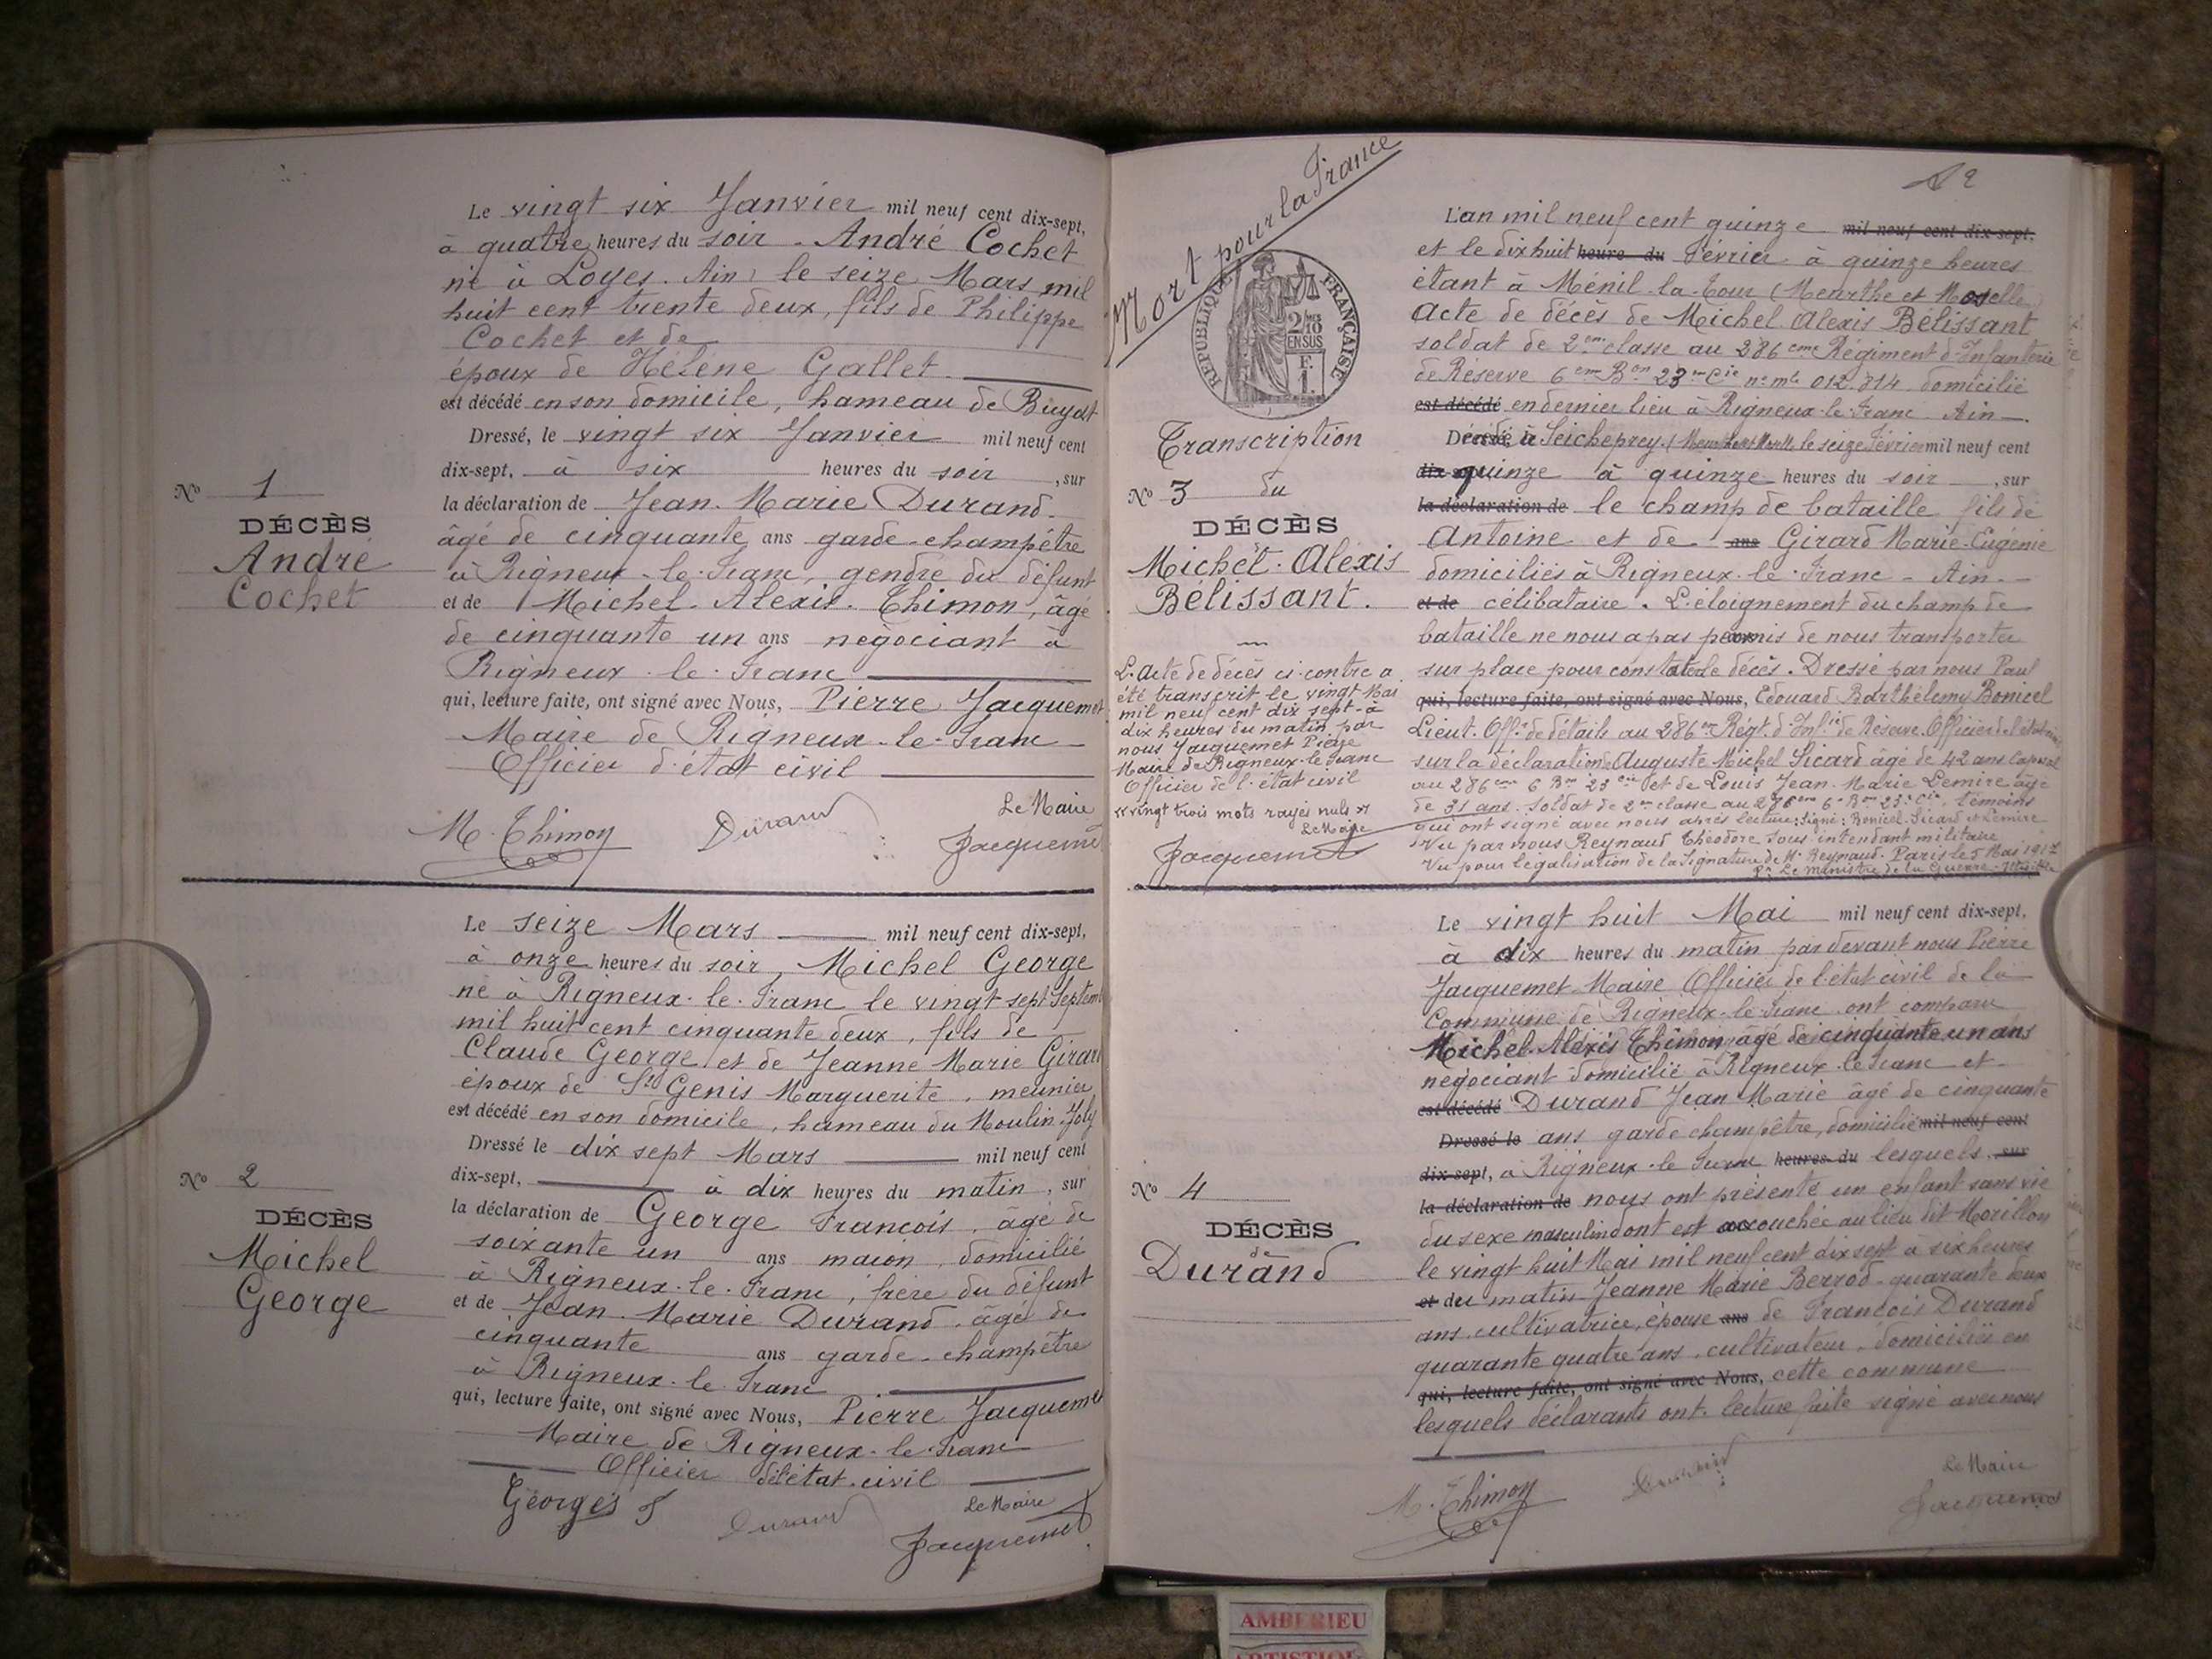 Le vingt six Janvier mil neuf cent dix-sept,
à quatre heures du soir - André Cochet
né à Loyes. Ain, le seize Mars mil
huit cent trente deux, fils de Philippe
Cochet et de
époux de Hélène Gallet.
est décédé en son domicile, hameau de Buyat
Dressé, le vingt six Janvier mil neuf cent
dix-sept, à six heures du soir, sur
la déclaration de Jean-Marie Durand.
âgé de cinquante ans garde-champêtre
à Rigneux-le-Franc, gendre du défunt
et de Michel-Alexis. Thimon, âgé
de cinquante un ans négociant à
Rigneux-le-Franc
qui, lecture faite, ont signé avec Nous, Pierre Jacquemet
Maire de Rigneux-le-Franc
Officier d'état civil
Le Maire
M. Thimon Durand Jacquemet
No 1
DÉCÈS
André
Cochet
Le seize Mars mil neuf cent dix-sept,
à onze heures du soir, Michel George
né à Rigneux-le-Franc le vingt sept Septem
mil huit cent cinquante deux, fils de
Claude George et de Jeanne Marie Girard
époux de St Genis Marguerite, meunier
est décédé en son domicile, hameau du Moulin-Joly
Dressé le dix sept Mars mil neuf cent
dix-sept, à dix heures du matin, sur
la déclaration de George François, âgé de
soixante un ans maçon, domicilié
à Rigneux-le-Franc, frère du défunt
et de Jean-Marie Durand, âgé de
cinquante ans garde-champêtre
à Rigneux-le-Franc
qui, lecture faite, ont signé avec Nous, Pierre Jacquemet
Maire de Rigneux-le-Franc
Officier de l'état-civil
Le Maire
Georges f Durand Jacquemet
No 2
DÉCÈS
Michel
George
Mort pour la France
RÉPUBLIQUE FRANÇAISE
2/10
EN SUS
F.
1.
Transcription
No 3 du
DÉCÈS
Michel-Alexis
Bélissant.
L'acte de décès ci-contre a
été transcrit le vingt Mai
mil neuf cent dix sept à
dix heures du matin par
nous Jacquemet Pierre
Maire de Rigneux-le-Franc
Officier de l'état civil
"vingt trois mots rayés nuls"
Le Maire
Jacquemet
L'an mil neuf cent quinze mil neuf cent dix-sept,
et le dix huit heure du Février à quinze heures
étant à Ménil-la-Tour (Meurthe et Moselle)
Acte de décès de Michel Alexis Bélissant
soldat de 2eme classe au 286eme Régiment d'Infanterie
de Réserve 6em Bon 23em Cie no mle 012.314 domicilié
est décédé en dernier lieu à Rigneux-le-Franc Ain
Décédé à Seicheprey (Meurthe et Moselle) le seize Février mil neuf cent
dix-sept quinze à quinze heures du soir, sur
la déclaration de le champ de bataille, fils de
Antoine et de ans Girard Marie-Eugénie
domiciliés à Rigneux-le-Franc - Ain -
et de célibataire. L'éloignement du champ de
bataille ne nous a pas permis de nous transporter
sur place pour constater le décès. Dressé par nous Paul
qui, lecture faite, ont signé avec Nous, Edouard Barthélemy Bonicel
Lieut. Offr de détails au 286em Régt d'Infie de Réserve, Officier de l'état civil
sur la déclaration de Auguste Michel Sicard âgé de 42 ans caporal
au 286em 6 Bon 23 Cie et de Louis Jean-Marie Lemire âgé
de 31 ans. Soldat de 2em classe au 286em 6e Bon 23e Cie, témoins
qui ont signé avec nous après lecture; Signé: Bonicel-Sicard et Lemire
Vu par nous Reynaud Théodore Sous intendant militaire
Vu pour légalisation de la signature de Mr Reynaud. Paris le 5 Mai 1917
Pr Le ministre de la Guerre
Le vingt huit Mai mil neuf cent dix-sept,
à dix heures du matin par devant nous Pierre
Jacquemet Maire Officier de l'état civil de la
Commune de Rigneux-le-Franc ont comparu
Michel-Alexis Thimon, âgé de cinquante un ans
négociant domicilié à Rigneux-le-Franc et
est décédé Durand Jean Marie âgé de cinquante
Dressé le ans garde champêtre, domicilié mil neuf cent
dix-sept, à Rigneux-le-Franc heures du lesquels sur
la déclaration de nous ont présenté un enfant sans vie
du sexe masculin dont est accouchée au lieu dit Morillon
le vingt huit Mai mil neuf cent dix sept à six heures
et du matin Jeanne Marie Berrod - quarante deux
ans, cultivatrice, épouse ans de François Durand
quarante quatre ans, cultivateur, domiciliés en
qui, lecture faite, ont signé avec Nous, cette commune
lesquels déclarants ont, lecture faite signé avec nous
Le Maire
M. Thimon Durand Jacquemet
No 4
DÉCÈS
de
Durand
AMBERIEU